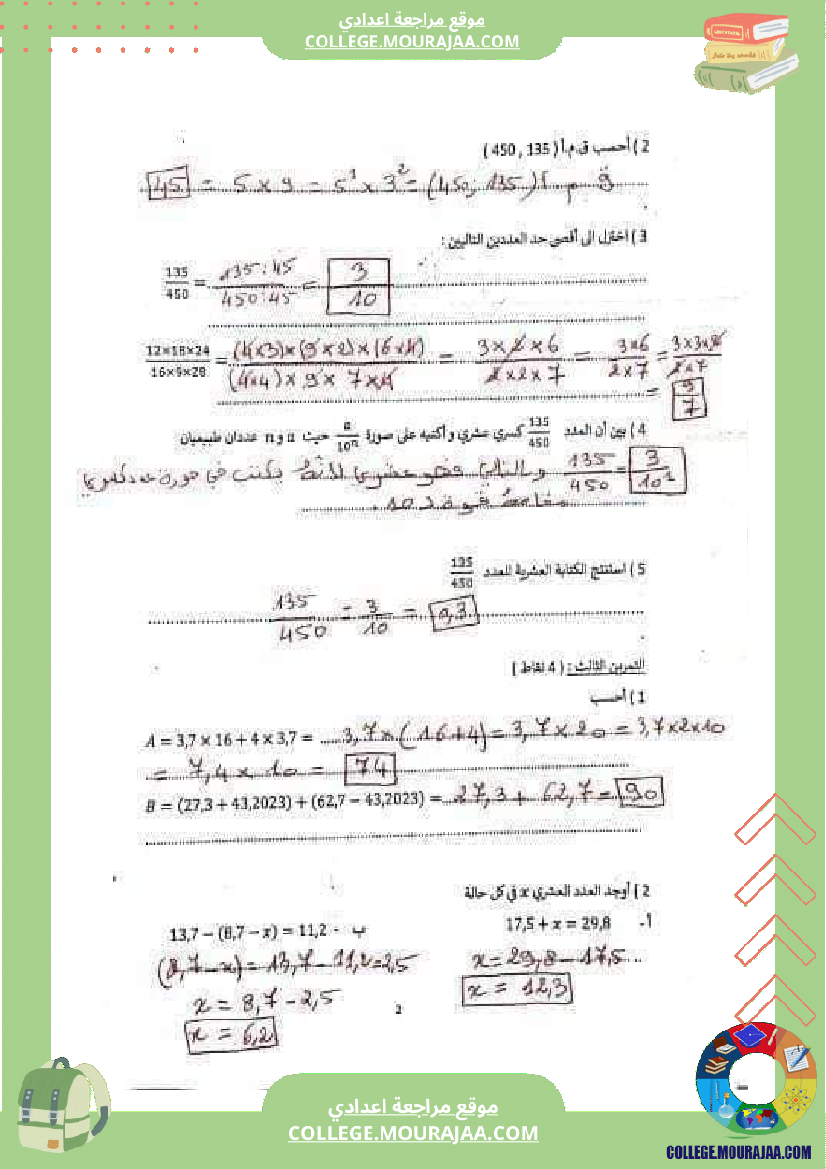 موقع مراجعة اعدادي
COLLEGE.MOURAJAA.COM
2 ) أحسب ق.م.أ ( 135 , 450 )
ق م أ (135 ; 450) = 3² × 5¹ = 9 × 5 = 45
3 ) اختزل الى أقصى حد العددين التاليين :
135/450 = 135:45/450:45 = 3/10
12×18×24/16×9×28 = (4×3)×(9×2)×(6×4)/(4×4)×9×7×4 = 3×2×6/2×2×7 = 3×6/2×7 = 3×3×2/2×7
= 9/7
4 ) بين أن العدد 135/450 كسري عشري و أكتبه على صورة a/10ⁿ حيث a و n عددان طبيعيان
135/450 = 3/10¹ و بالتالي فهو عشري لأنه يكتب في صورة عدد كسري
مقامه قوة لـ 10 .
5 ) استنتج الكتابة العشرية للعدد 135/450
135/450 = 3/10 = 0,3
التمرين الثالث : ( 4 نقاط )
1 ) أحسب
A = 3,7 × 16 + 4 × 3,7 = 3,7 × (16+4) = 3,7 × 20 = 3,7×2×10
= 7,4 × 10 = 74
B = (27,3 + 43,2023) + (62,7 − 43,2023) = 27,3 + 62,7 = 90
2 ) أوجد العدد العشري x في كل حالة
أ- 17,5 + x = 29,8
x = 29,8 − 17,5
x = 12,3
ب - 13,7 − (8,7 − x) = 11,2
(8,7 − x) = 13,7 − 11,2 = 2,5
x = 8,7 − 2,5
x = 6,2
2
موقع مراجعة اعدادي
COLLEGE.MOURAJAA.COM
COLLEGE.MOURAJAA.COM